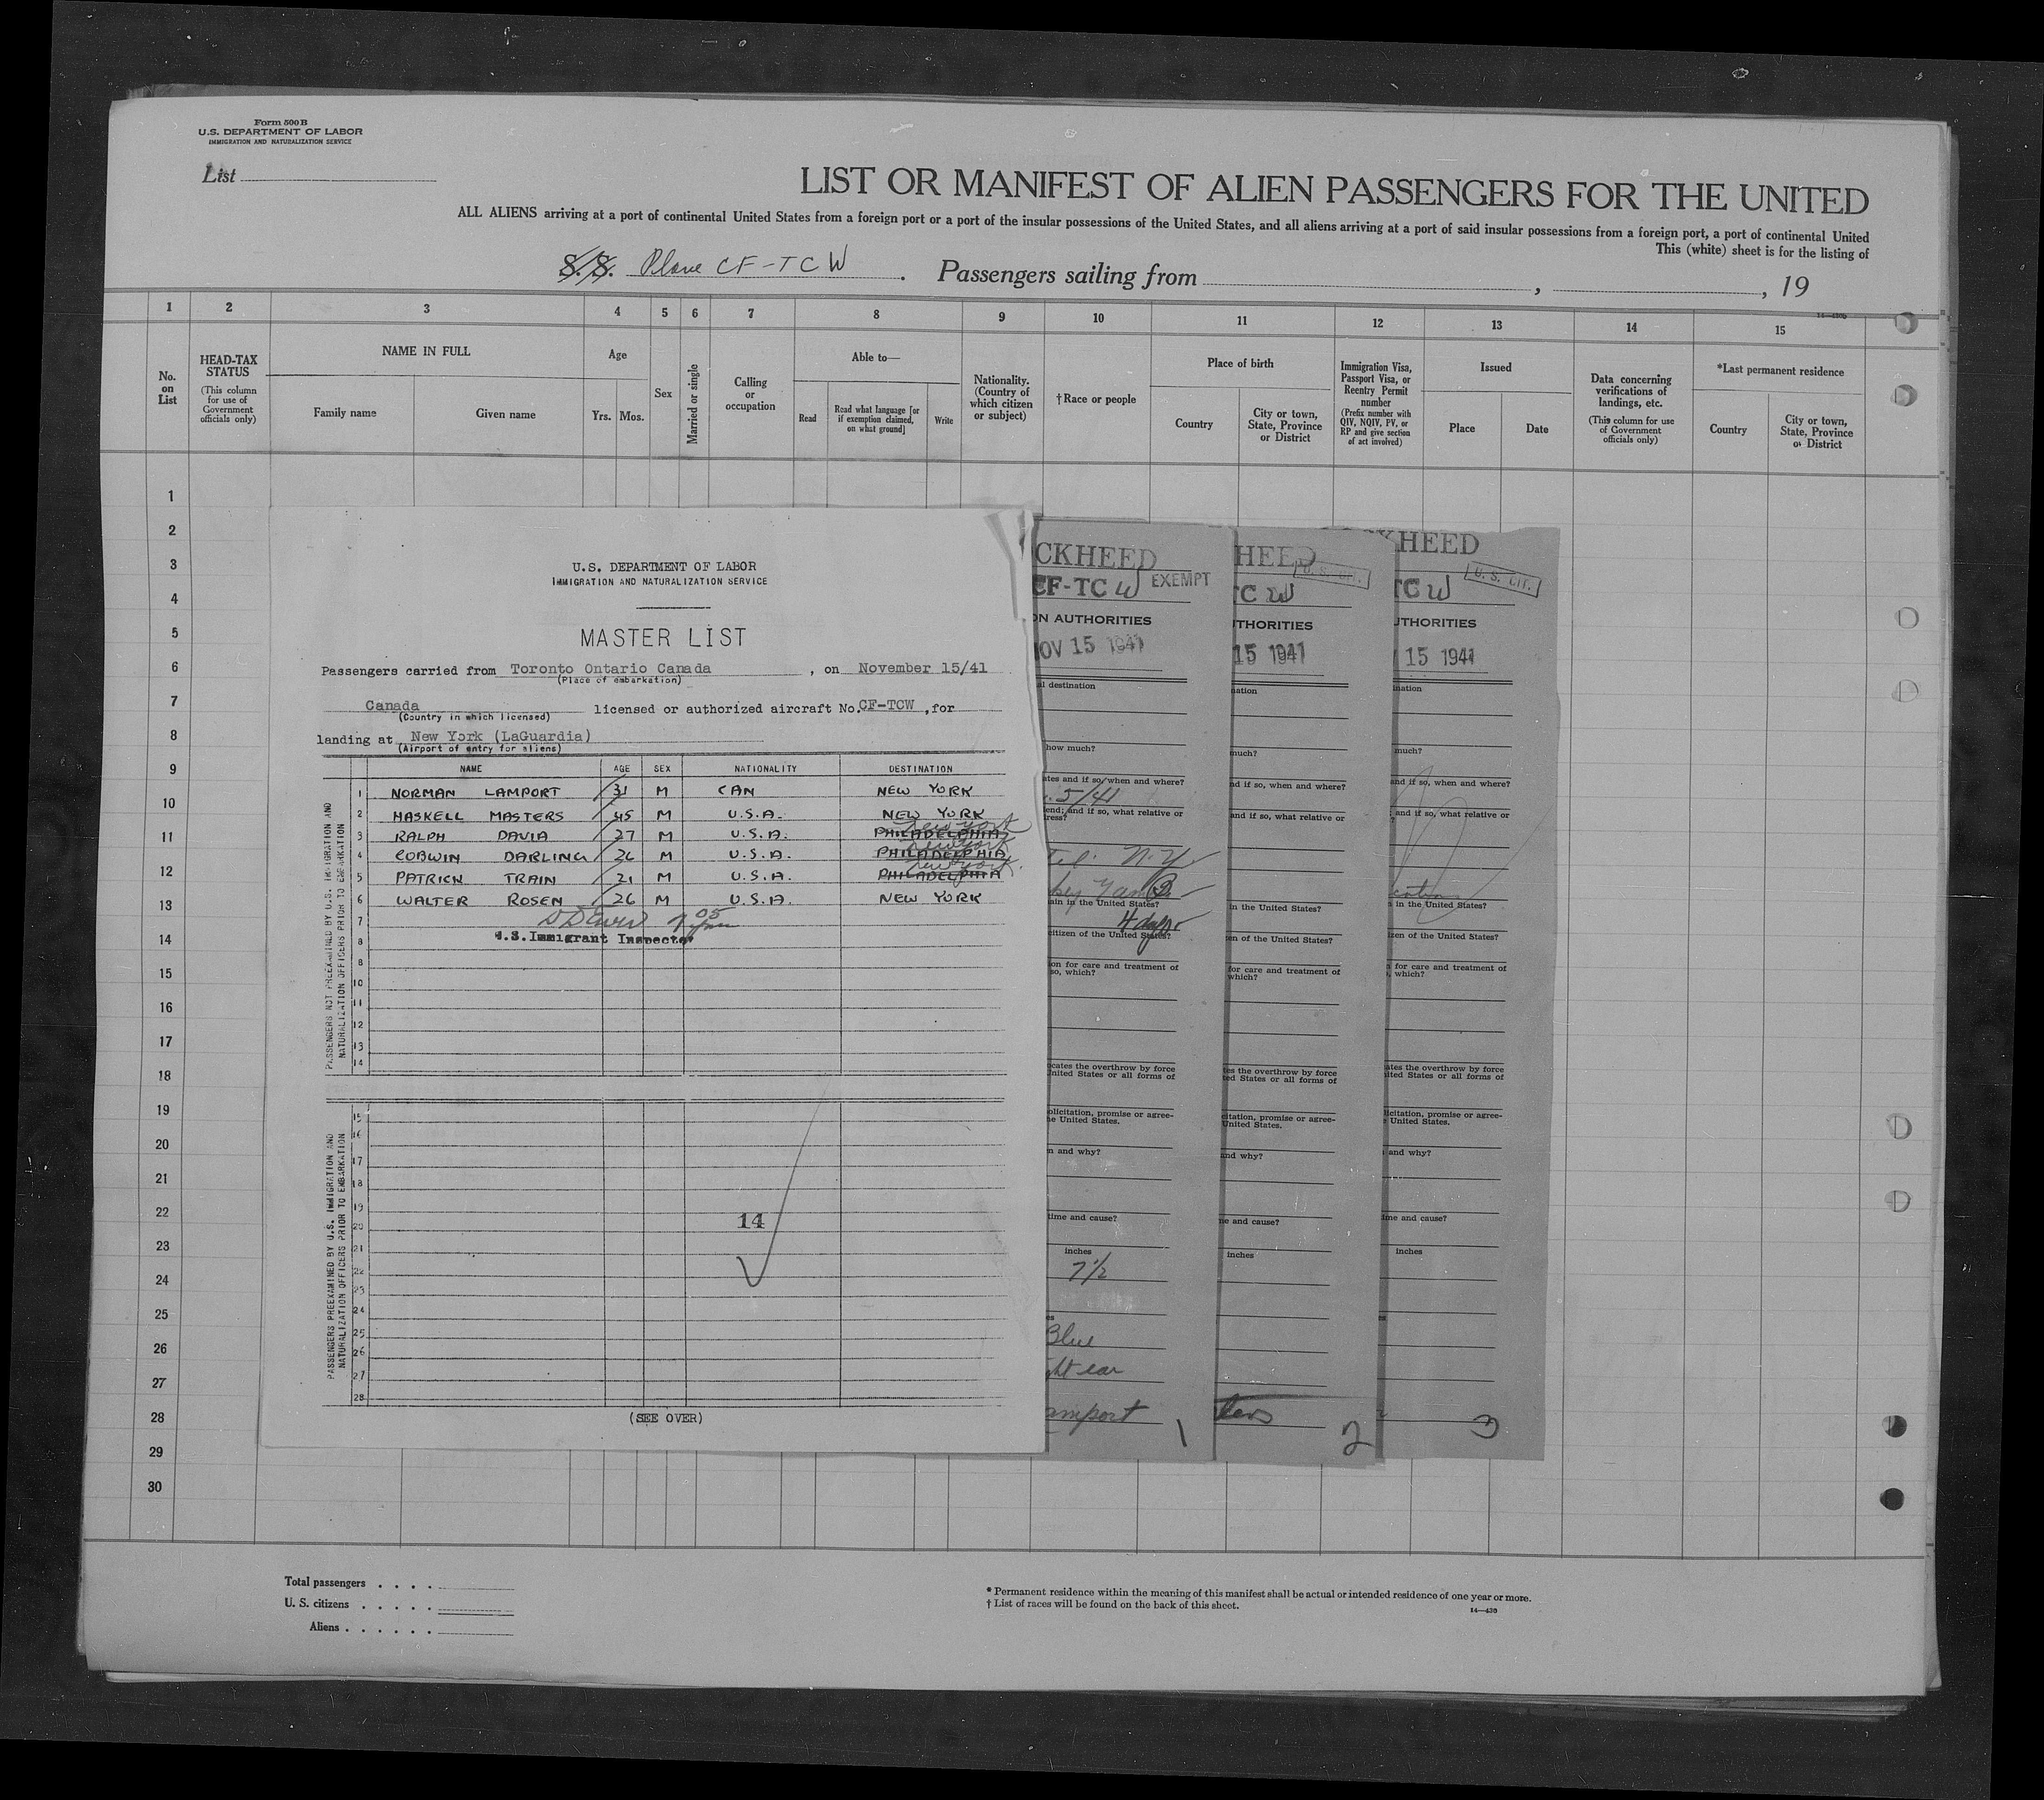 Form 500B
U.S. DEPARTMENT OF LABOR
IMMIGRATION AND NATURALIZATION SERVICE
List
LIST OR MANIFEST OF ALIEN PASSENGERS FOR THE UNITED
ALL ALIENS arriving at a port of continental United States from a foreign port or a port of the insular possessions of the United States, and all aliens arriving at a port of said insular possessions from a foreign port, a port of continental United
This (white) sheet is for the listing of
S.S. Plane CF-TCW. Passengers sailing from , , 19
14—430
1 2 3 4 5 6 7 8 9 10 11 12 13 14 15
No. on List
HEAD-TAX STATUS
(This column for use of Government officials only)
NAME IN FULL
Family name
Given name
Age
Yrs. Mos.
Sex
Married or single
Calling or occupation
Able to—
Read
Read what language [or if exemption claimed, on what ground]
Write
Nationality. (Country of which citizen or subject)
†Race or people
Place of birth
Country
City or town, State, Province or District
Immigration Visa, Passport Visa, or Reentry Permit number
(Prefix number with QIV, NQIV, PV, or RP and give section of act involved)
Issued
Place
Date
Data concerning verifications of landings, etc.
(This column for use of Government officials only)
*Last permanent residence
Country
City or town, State, Province or District
1
2
3
4
5
6
7
8
9
10
11
12
13
14
15
16
17
18
19
20
21
22
23
24
25
26
27
28
29
30
U.S. DEPARTMENT OF LABOR
IMMIGRATION AND NATURALIZATION SERVICE
MASTER LIST
Passengers carried from Toronto Ontario Canada , on November 15/41
(Place of embarkation)
Canada licensed or authorized aircraft No. CF-TCW , for
(Country in which licensed)
landing at New York (LaGuardia)
(Airport of entry for aliens)
NAME AGE SEX NATIONALITY DESTINATION
1 NORMAN LAMPORT 31 M CAN NEW YORK
2 HASKELL MASTERS 45 M U.S.A. NEW YORK
3 RALPH DAVIA 27 M U.S.A. PHILADELPHIA New York
4 CORWIN DARLING 26 M U.S.A. PHILADELPHIA New York
5 PATRICK TRAIN 21 M U.S.A. PHILADELPHIA New York
6 WALTER ROSEN 26 M U.S.A. NEW YORK
7
U.S. Immigrant Inspector
8
8
10
11
12
13
14
PASSENGERS NOT PREEXAMINED BY U.S. IMMIGRATION AND NATURALIZATION OFFICERS PRIOR TO EMBARKATION
15
16
17
18
19
20
21
22
23
24
25
26
27
28
14
PASSENGERS PREEXAMINED BY U.S. IMMIGRATION AND NATURALIZATION OFFICERS PRIOR TO EMBARKATION
(SEE OVER)
CKHEED
CF-TCW EXEMPT
ON AUTHORITIES
OV 15 1941
al destination
how much?
ates and if so, when and where?
5/41
end; and if so, what relative or
ress?
tel. N.Y.
ain in the United States?
4 days
citizen of the United States?
on for care and treatment of
so, which?
ocates the overthrow by force
nited States or all forms of
olicitation, promise or agree-
e United States.
n and why?
time and cause?
inches
7½
es
Blue
ght ear
amport 1
HEED
U.S. CIT.
TCW
THORITIES
15 1941
nation
much?
nd if so, when and where?
and if so, what relative or
in the United States?
en of the United States?
for care and treatment of
which?
tes the overthrow by force
ted States or all forms of
citation, promise or agree-
United States.
and why?
ne and cause?
inches
ters
2
KHEED
U.S. CIT.
TCW
THORITIES
15 1941
ination
much?
and if so, when and where?
; and if so, what relative or
?
n in the United States?
zen of the United States?
n for care and treatment of
, which?
ates the overthrow by force
ited States or all forms of
licitation, promise or agree-
e United States.
and why?
ime and cause?
inches
es
3
Total passengers . . . .
U. S. citizens . . . . .
Aliens . . . . . .
* Permanent residence within the meaning of this manifest shall be actual or intended residence of one year or more.
† List of races will be found on the back of this sheet.
14—430